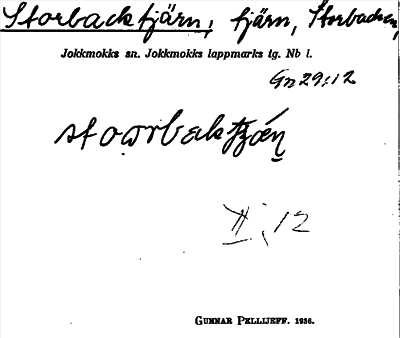 Storbacktjärn, tjärn, Storbacken,
Jokkmokks sn. Jokkmokks lappmarks tg. Nb l.
Gn 29:12
II, 12
GUNNAR PELLIJEFF. 1936.